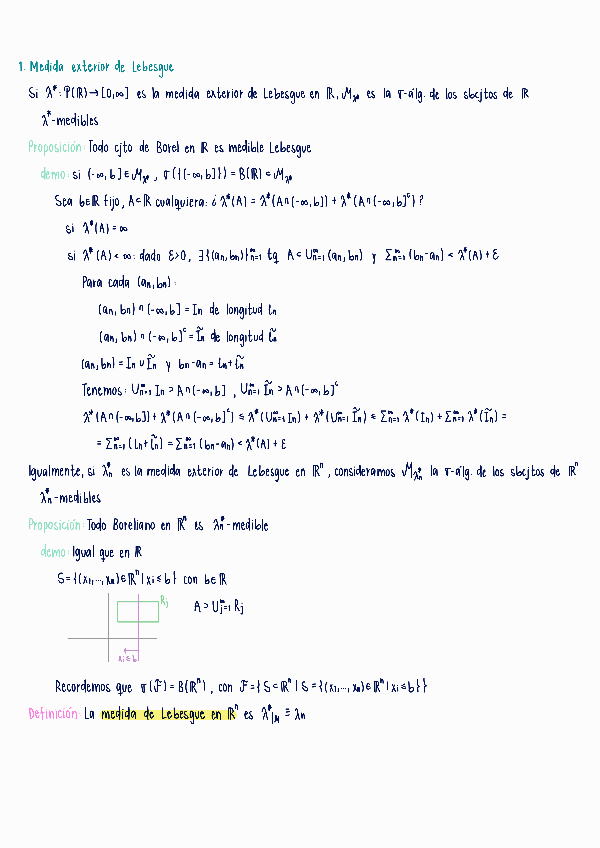 1. Medida exterior de Lebesgue
Si λ*: P(ℝ) → [0,∞] es la medida exterior de Lebesgue en ℝ, M_λ* es la σ-álg. de los sbcjtos de ℝ
λ*-medibles
Proposición: Todo cjto de Borel en ℝ es medible Lebesgue
demo: si (-∞, b] ∈ M_λ*, σ({(-∞, b]}) = B(ℝ) ⊂ M_λ*
Sea b∈ℝ fijo, A⊂ℝ cualquiera: ¿ λ*(A) = λ*(A∩(-∞, b]) + λ*(A∩(-∞, b]ᶜ) ?
si λ*(A) = ∞
si λ*(A) < ∞: dado ε>0, ∃{(aₙ, bₙ)}ₙ₌₁^∞ tq A ⊂ ∪ₙ₌₁^∞ (aₙ, bₙ) y Σₙ₌₁^∞ (bₙ-aₙ) < λ*(A) + ε
Para cada (aₙ, bₙ):
(aₙ, bₙ) ∩ (-∞, b] = Iₙ de longitud lₙ
(aₙ, bₙ) ∩ (-∞, b]ᶜ = Ĩₙ de longitud l̃ₙ
(aₙ, bₙ) = Iₙ ∪ Ĩₙ y bₙ-aₙ = lₙ + l̃ₙ
Tenemos: ∪ₙ₌₁^∞ Iₙ ⊃ A∩(-∞, b] , ∪ₙ₌₁^∞ Ĩₙ ⊃ A∩(-∞, b]ᶜ
λ*(A∩(-∞, b]) + λ*(A∩(-∞, b]ᶜ) ≤ λ*(∪ₙ₌₁^∞ Iₙ) + λ*(∪ₙ₌₁^∞ Ĩₙ) ≤ Σₙ₌₁^∞ λ*(Iₙ) + Σₙ₌₁^∞ λ*(Ĩₙ) =
= Σₙ₌₁^∞ (lₙ + l̃ₙ) = Σₙ₌₁^∞ (bₙ-aₙ) < λ*(A) + ε
Igualmente, si λₙ* es la medida exterior de Lebesgue en ℝⁿ, consideramos M_λₙ* la σ-álg. de los sbcjtos de ℝⁿ
λₙ*-medibles
Proposición: Todo Boreliano en ℝⁿ es λₙ*-medible
demo: Igual que en ℝ
S = {(x₁,..., xₙ) ∈ ℝⁿ | xᵢ ≤ b} con b∈ℝ
Rj
A ⊃ ∪ⱼ₌₁^∞ Rj
xᵢ ≤ b
Recordemos que σ(F) = B(ℝⁿ), con F = {S ⊂ ℝⁿ | S = {(x₁,..., xₙ) ∈ ℝⁿ | xᵢ ≤ b}}
Definición: La medida de Lebesgue en ℝⁿ es λ*|_M ≡ λₙ